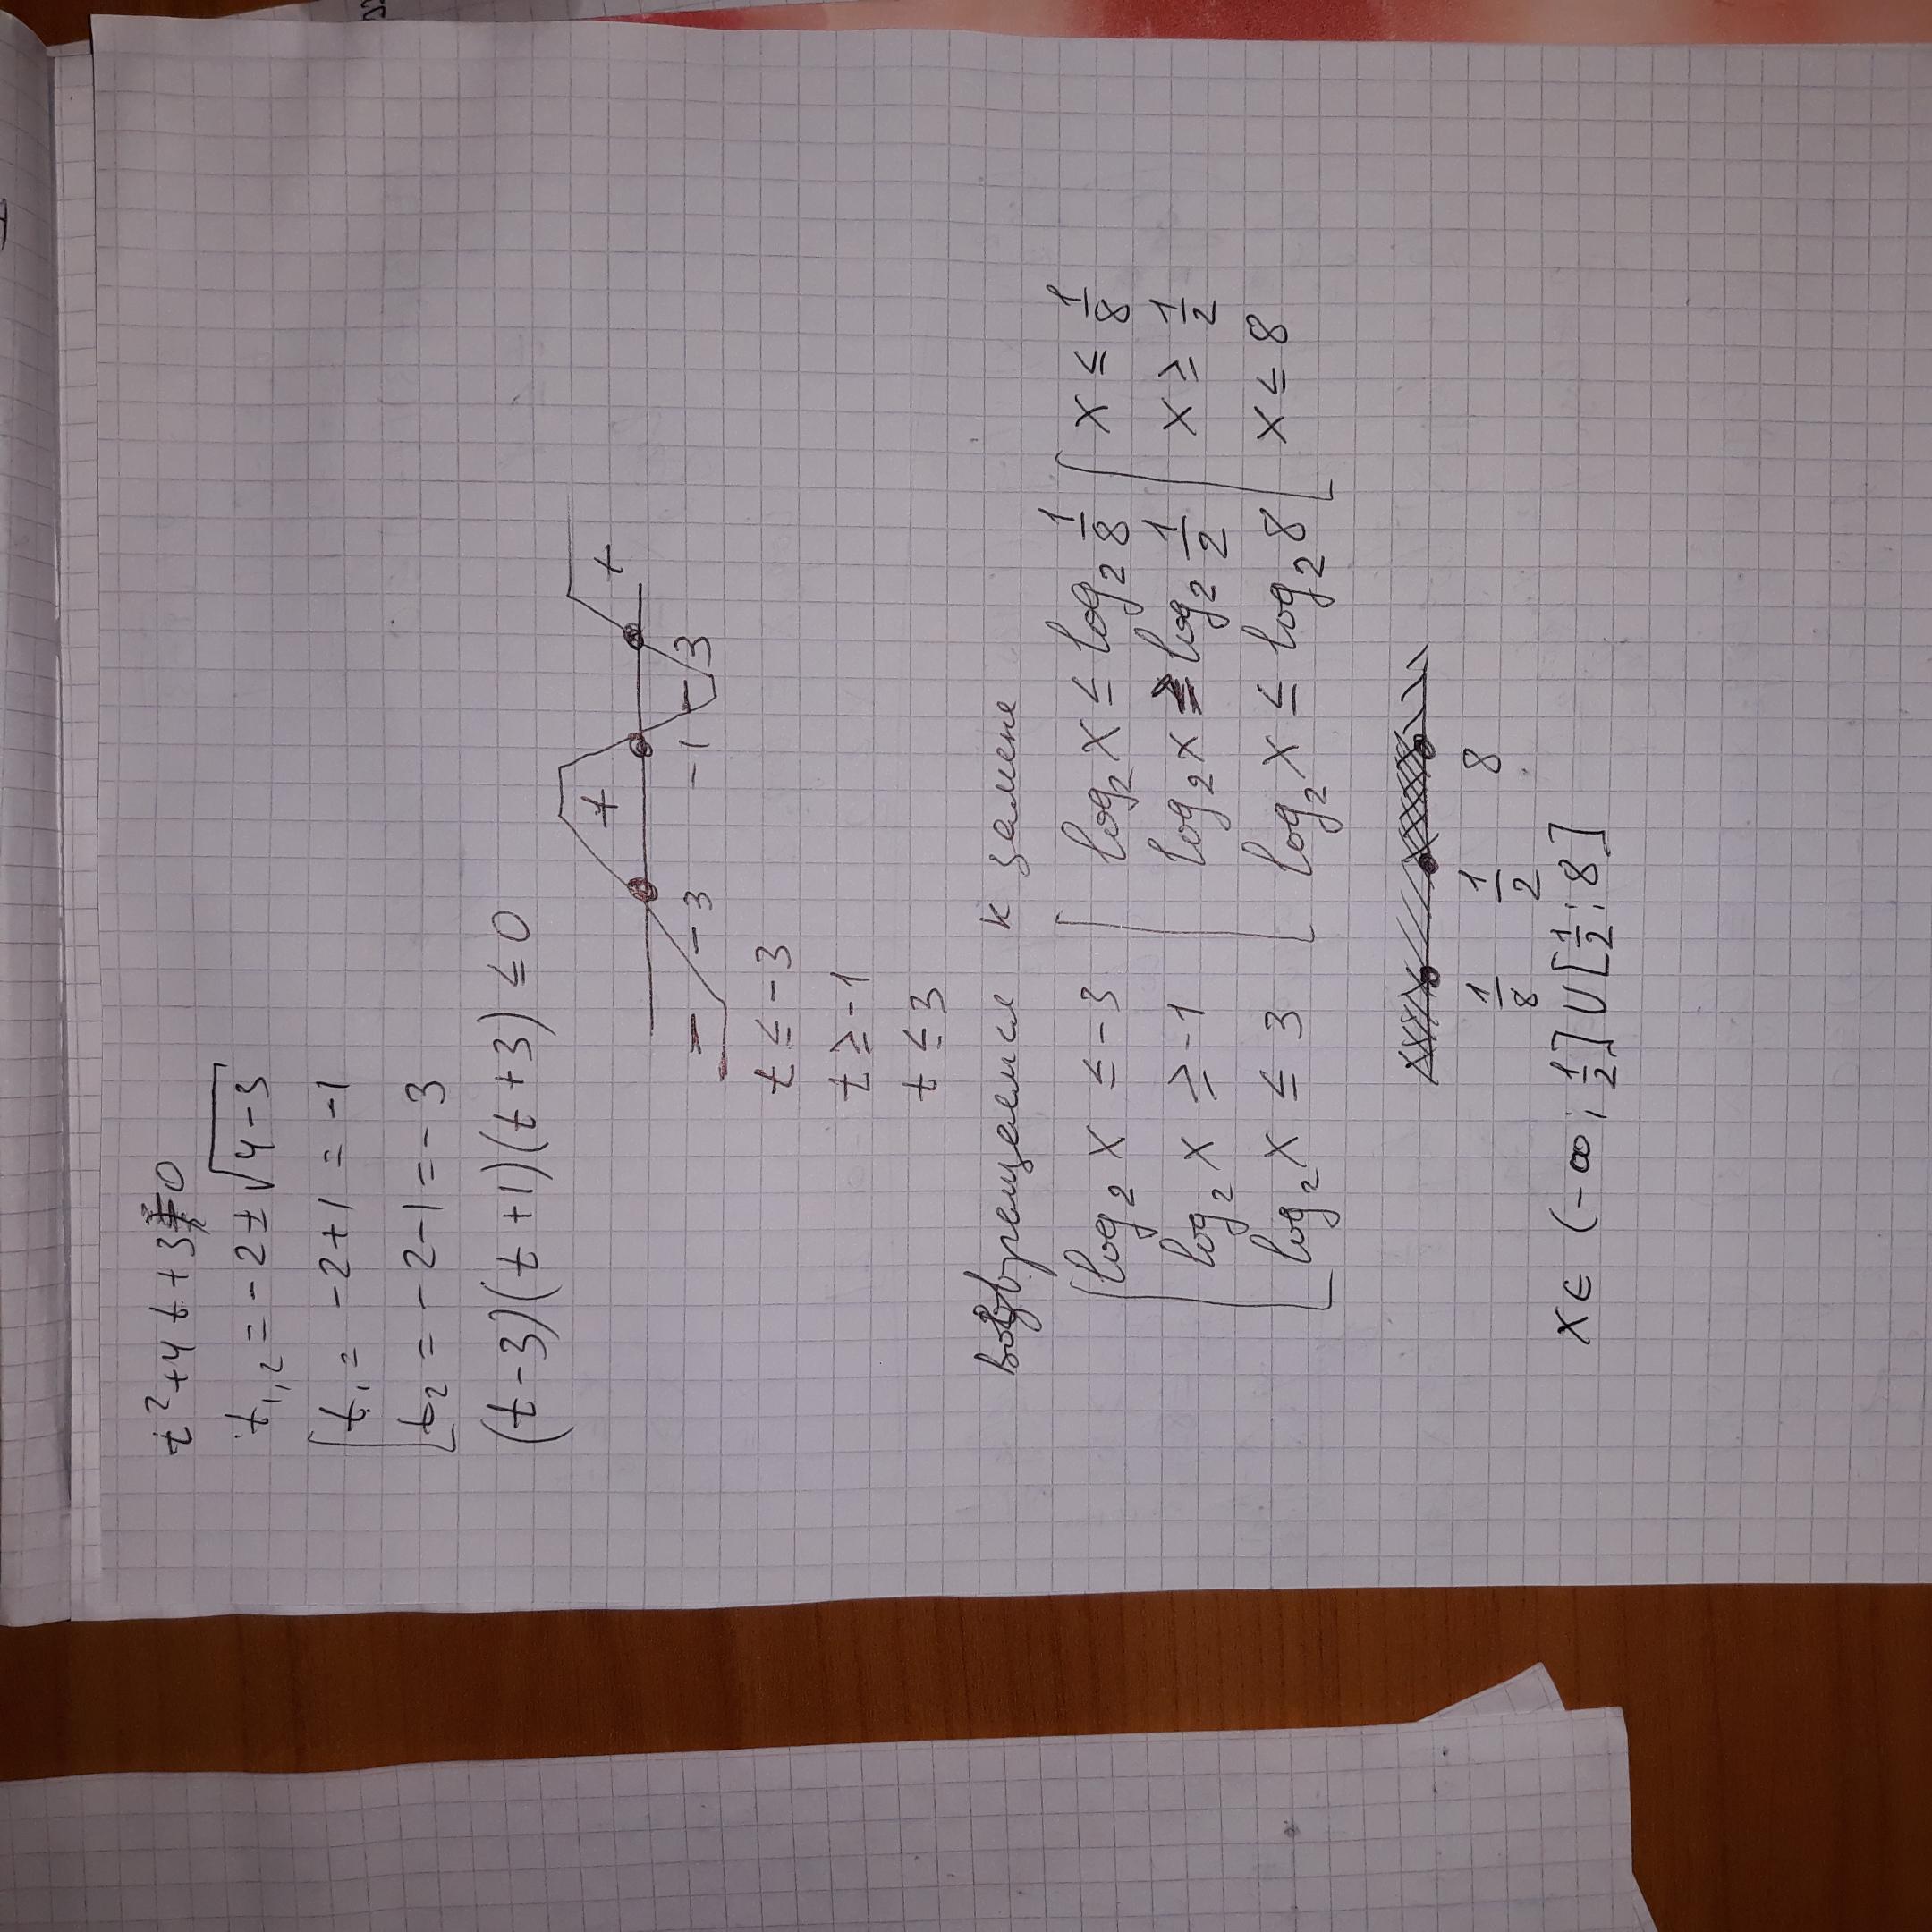 t²+4t+3=0
t₁,₂=-2±√4-3
[t₁= -2+1=-1
[t₂=-2-1=-3
(t-3)(t+1)(t+3)≤0
+ +
- -
-3 -1 3
t≤-3
t≥-1
t≤3
возвращаемся к замене
[log₂x≤-3 [log₂x≤log₂ 1/8 [x≤ 1/8
log₂x≥-1 log₂x≥log₂ 1/2 x≥ 1/2
log₂x≤3 log₂x≤log₂8 x≤8
1/8 1/2 8
x∈(-∞; 1/2]∪[1/2;8]